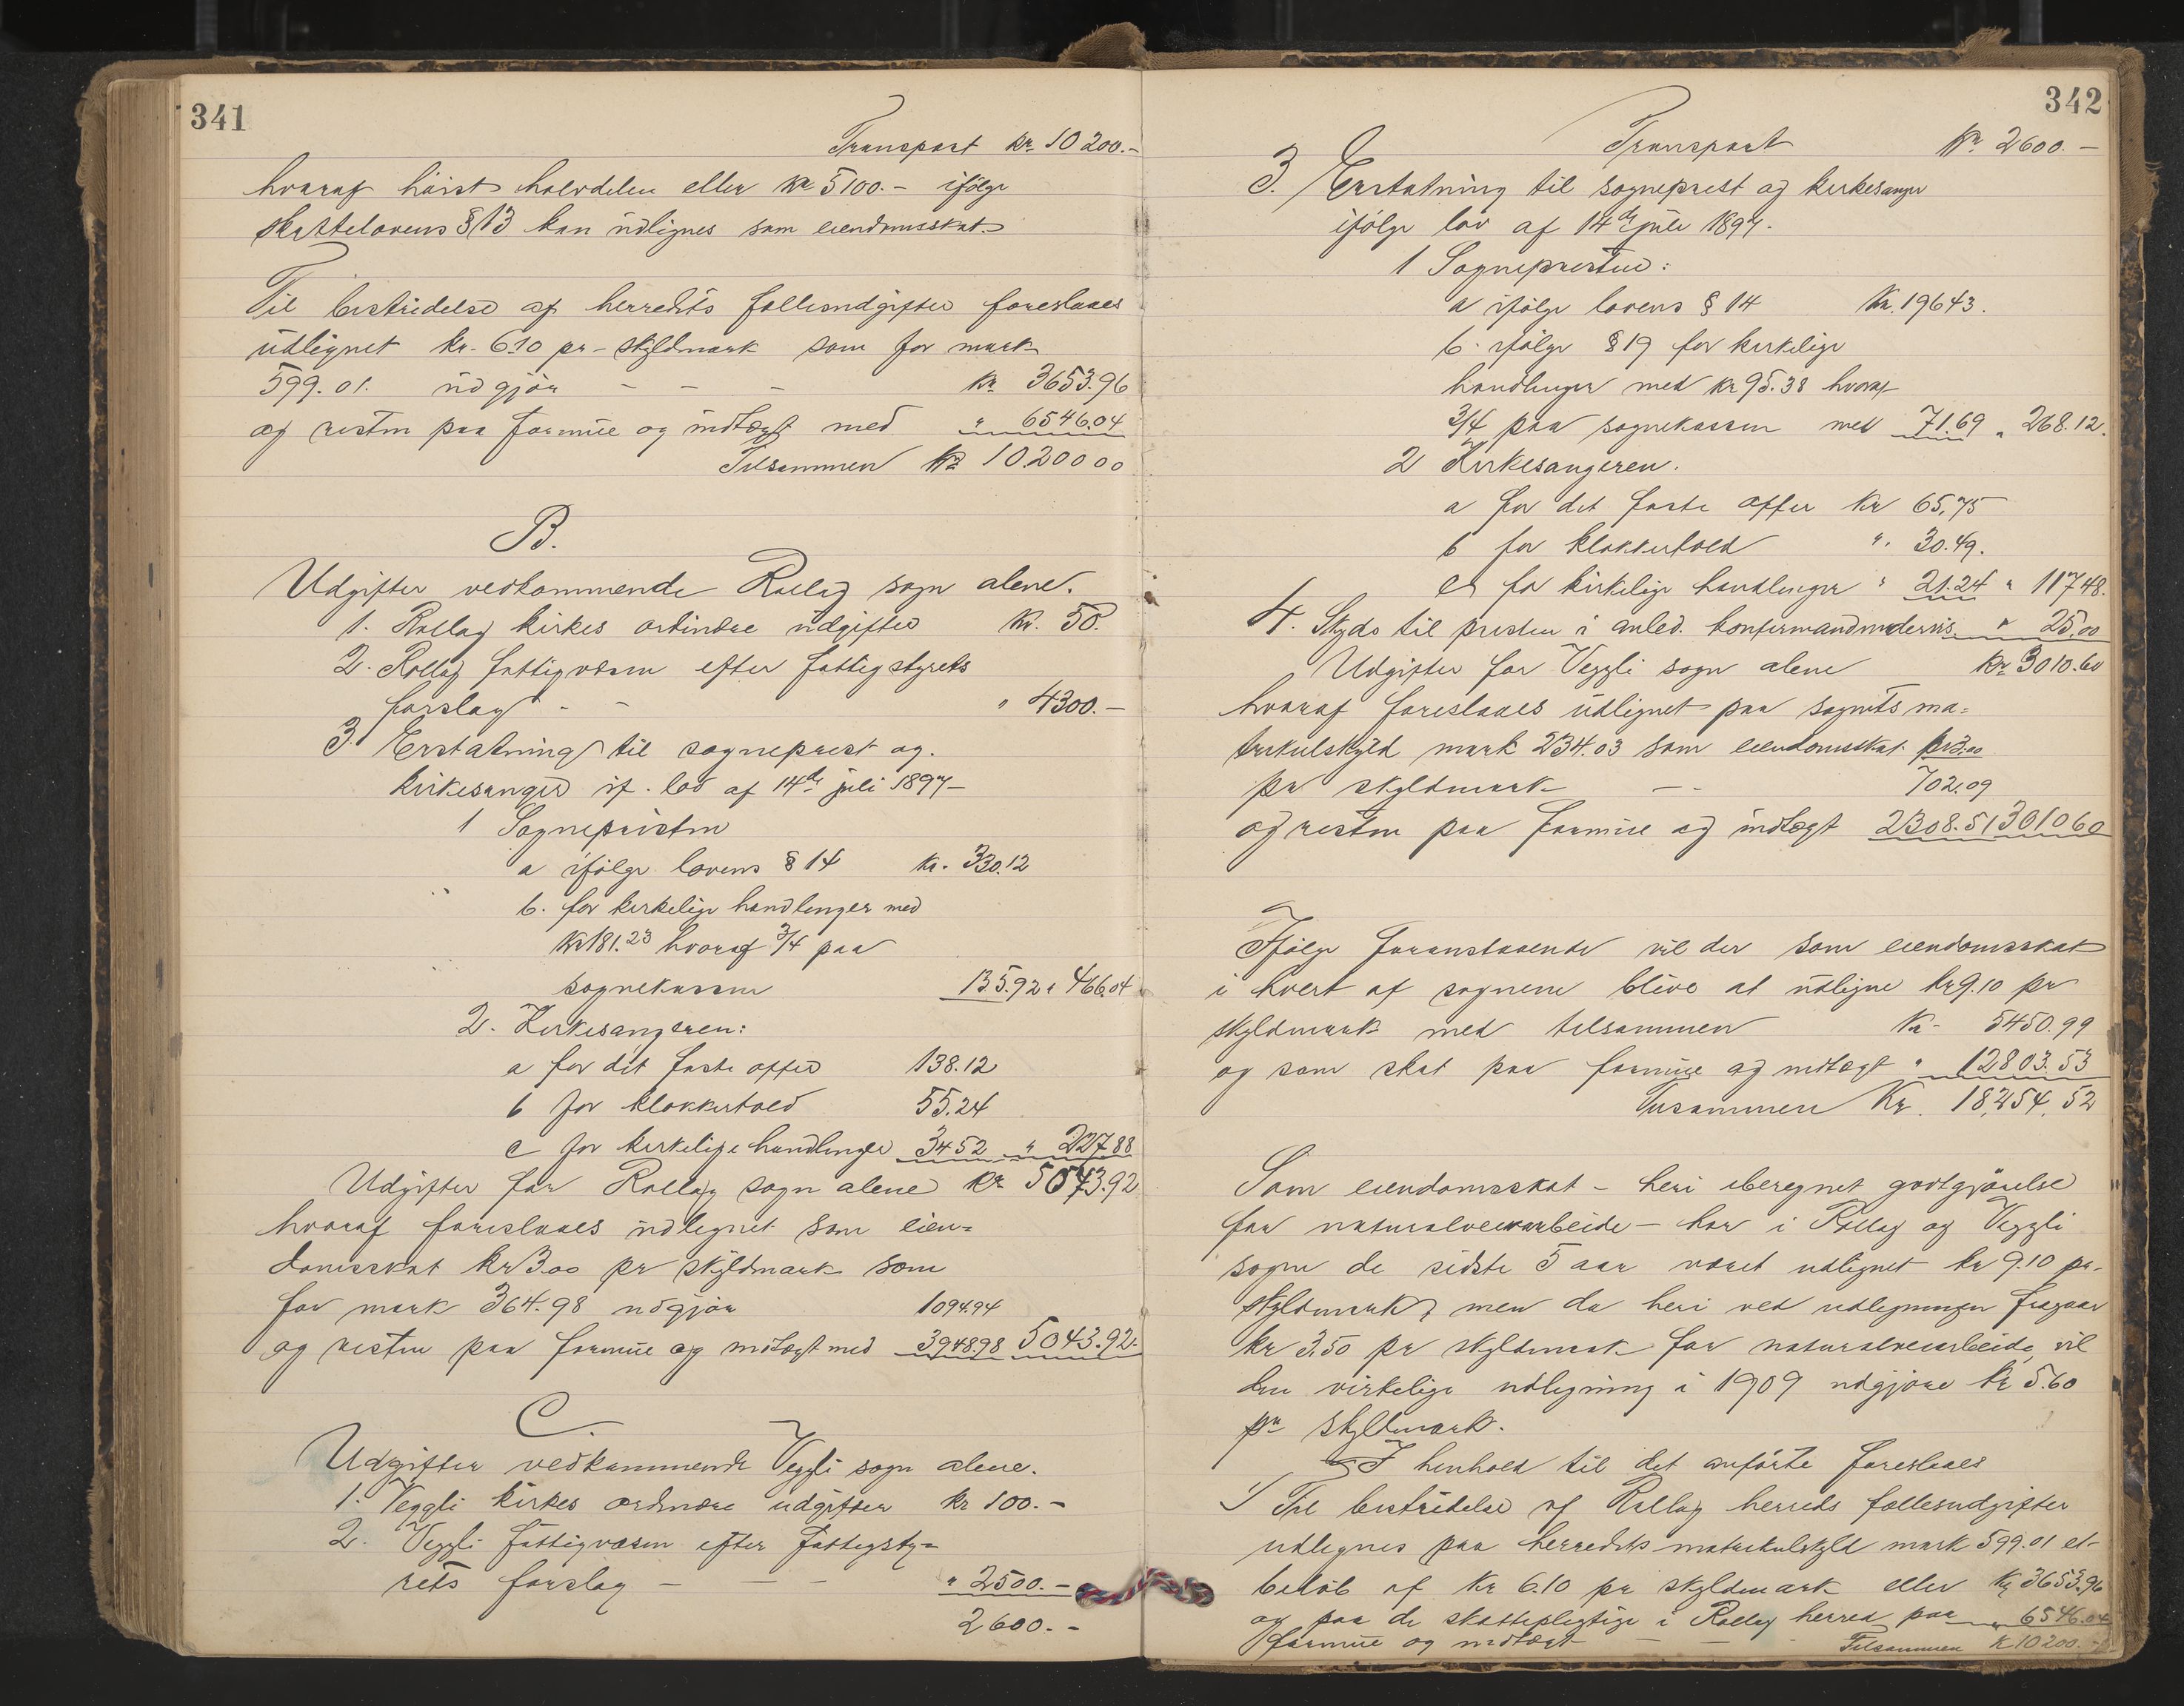 341
Transport kr. 10200.-
hvoraf höist halvdelen eller kr 5100.- ifölge
skattelovens §13 kan üdlignes som eiendomsskat.
Til bestridelse af herredets fællesudgifter foreslaaes
üdlignet kr. 6.10 pr. skyldmark som for mark
599.01. üdgjör - - - kr 3653.96
og resten paa formüe og indtægt med " 6546.04
Tilsammen kr 10.200 00
B.
Udgifter vedkommende Rollag sogn alene.
1. Rollag kirkes ordinære üdgifter kr. 50.
2. Rollag fattigvæsen efter fattigstyrets
forslag - - " 4300.-
3. Erstatning til sogneprest og
kirkesanger if. lov af 14de juli 1897-
1 Sognepresten
a ifölge lovens § 14 kr. 330.12
b. for kirkelige handlinger med
kr 181.23 hvoraf 3/4 paa
sognekassen 135.92 " 466.04
2. Kirkesangeren:
a for det faste offer 138.12
b for klokkertold 55.24
c for kirkelige handlinger 34 52 " 227 88
Udgifter for Rollag sogn alene kr 5043.92
hvoraf foreslaaes üdlignet som eien=
domsskat kr 3.00 pr skyldmark som
for mark 364.98 udgjör 1094.94
og resten paa formüe og indtægt med 3948.98 5043.92.
C.
Udgifter vedkommende Veggli sogn alene.
1. Veggli kirkes ordinære udgifter kr 100.-
2. Veggli fattigvæsen efter fattigsty=
rets forslag - - - " 2500.-
2600.-
342
Transport kr. 2600.-
3. Erstatning til sogneprest og kirkesanger
ifölge lov af 14de juli 1897.
1 Sognepresten:
a ifölge lovens § 14 kr. 196 43.
b. ifölge § 19 for kirkelige
handlinger med kr 95.38 hvoraf
3/4 paa sognekassen med 71.69 " 268.12.
2 Kirkesangeren.
a for det faste offer kr 65,75
b for klokkertold ". 30.49.
c for kirkelige handlinger " 21.24 " 117 48.
4. Skyds til presten i anled. konfirmandundervis. " 25,00
Udgifter for Veggli sogn alene kr 3010.60
hvoraf foreslaaes üdlignet paa sognets ma=
trikulskyld mark 234.03 som eiendomsskat kr 3.00
pr skyldmark - - 702.09
og resten paa formüe og indtægt 2308.51 3010 60
Ifölge foranstaaende vil der som eiendomsskat
i hvert af sognene blive at üdligne kr 9.10 pr
skyldmark med tilsammen kr- 5450.99
og som skat paa formüe og indtægt " 12803.53
Tilsammen kr. 18,254,52
Som eiendomsskat - heri iberegnet godtgjörelse
for naturalveiarbeide - har i Rollag og Veggli
sogn de sidste 5 aar været udlignet kr 9.10 pr.
skyldmark, men da heri ved udligningen fragaar
kr 3.50 pr skyldmark for naturalveiarbeide, vil
den virkelige udligning i 1909 udgjöre kr 5.60
pr skyldmark.
I henhold til det anförte foreslaaes
1/ Til bestridelse af Rollag herreds fællesudgifter
udlignes paa herredets matrikulskyld mark 599.01 et
belöb af kr 6.10 pr skyldmark eller kr 3653.96
og paa de skattepligtige i Rollag herred paa " 6546.04
formüe og indtægt - - - Tilsammen kr 10200.-